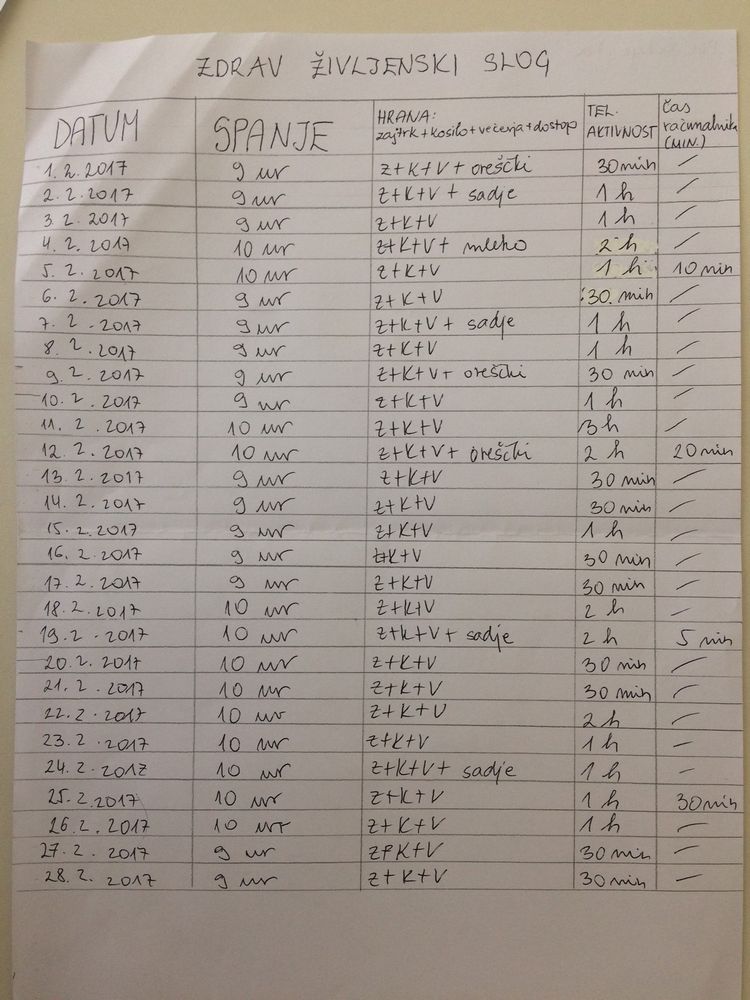 ZDRAV ŽIVLJENSKI SLOG
DATUM SPANJE HRANA: zajtrk+kosilo+večerja+dostop TEL. AKTIVNOST čas računalnika (MIN.)
1.2.2017 9 ur z+K+V+oreščki 30 min /
2.2.2017 9 ur z+K+V+sadje 1 h /
3.2.2017 9 ur z+K+V 1 h /
4.2.2017 10 ur z+K+V+mleko 2 h /
5.2.2017 10 ur z+K+V 1 h 10 min
6.2.2017 9 ur z+K+V 30 min /
7.2.2017 9 ur z+K+V+sadje 1 h /
8.2.2017 9 ur z+K+V 1 h /
9.2.2017 9 ur z+K+V+oreščki 30 min /
10.2.2017 9 ur z+K+V 1 h /
11.2.2017 10 ur z+K+V 3 h /
12.2.2017 10 ur z+K+V+oreščki 2 h 20 min
13.2.2017 9 ur z+K+V 30 min /
14.2.2017 9 ur z+K+V 30 min /
15.2.2017 9 ur z+K+V 1 h /
16.2.2017 9 ur z+K+V 30 min /
17.2.2017 9 ur z+K+V 30 min /
18.2.2017 10 ur z+K+V 2 h /
19.2.2017 10 ur z+K+V+sadje 2 h 5 min
20.2.2017 10 ur z+K+V 30 min /
21.2.2017 10 ur z+K+V 30 min /
22.2.2017 10 ur z+K+V 2 h /
23.2.2017 10 ur z+K+V 1 h /
24.2.2017 10 ur z+K+V+sadje 1 h /
25.2.2017 10 ur z+K+V 1 h 30 min
26.2.2017 10 ur z+K+V 1 h /
27.2.2017 9 ur z+K+V 30 min /
28.2.2017 9 ur z+K+V 30 min /